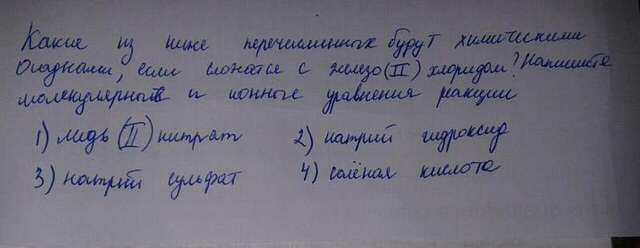 Какие из ниже перечисленных будут химическими
осадками, если смежатся с железо (II) хлоридом? Напишите
молекулярные и ионные уравнения реакции
1) медь (II) нитрат 2) натрий гидроксид
3) натрий сульфат 4) солёная кислота